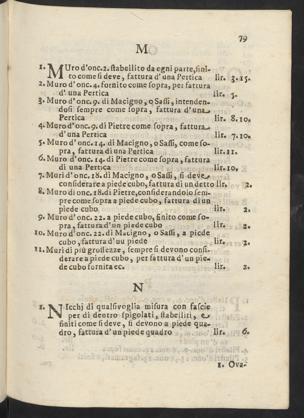 79
M
1. Muro d'onc. 2. stabilito da ogni parte, finito
to come si deve, fattura d'una Pertica lir. 3. 15.
2. Muro d'onc. 4. fornito come sopra, per fattura
d'una Pertica lir. 5.
3. Muro d'onc. 9. di Macigno, o Sassi, intendendosi
dosi sempre come sopra, fattura d'una
Pertica lir. 8. 10.
4. Muro d'onc. 9. di Pietre come sopra, fattura
d'una Pertica lir. 7. 10.
5. Muro d'onc. 14. di Macigno, o Sassi, come sopra,
pra, fattura di una Pertica lir. 11.
6. Muro d'onc. 14. di Pietre come sopra, fattura
di una Pertica lir. 10.
7. Muri d'onc. 18. di Macigno, o Sassi, si deve
considerare a piede cubo, fattura di un detto lir. 2.
8. Muro d'onc. 18. di Pietre, considerandolo sempre
pre come sopra a piede cubo, fattura di un
piede cubo. lir. 2.
9. Muro d'onc. 22. a piede cubo, finito come sopra,
pra, fattura d'un piede cubo lir. 2.
10. Muro d'onc. 22. di Macigno, o Sassi, a piede
cubo, fattura d'uu piede lir. 2.
11. Muri di più grossezze, sempre si devono considerare
derare a piede cubo, per fattura d'un piede
de cubo fornita ec. lir. 2.
N
1. Nicchi di qualsivoglia misura con fascie
per di dentro spigolati, stabiliti, e
finiti come si deve, si devono a piede quadro,
dro, fattura d'un piede quadro lir. 6.
1. Ova-